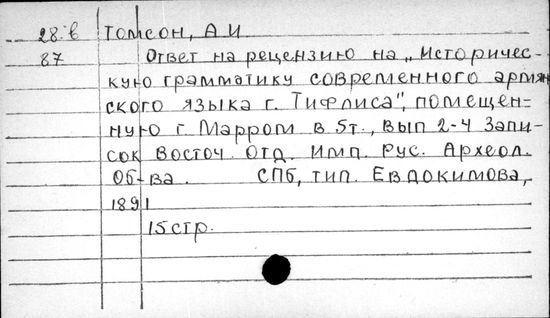 28.б Томсон, А И
87 Ответ на рецензию на „Историчес-
кую грамматику современного армян
ского языка г. Тифлиса", помещен-
ную г. Марром в 5т., вып 2-4 Запи-
сок Восточ. Отд. Имп. Рус. Археол.
Об-ва. СПб, тип. Евдокимова,
1891
15 стр.